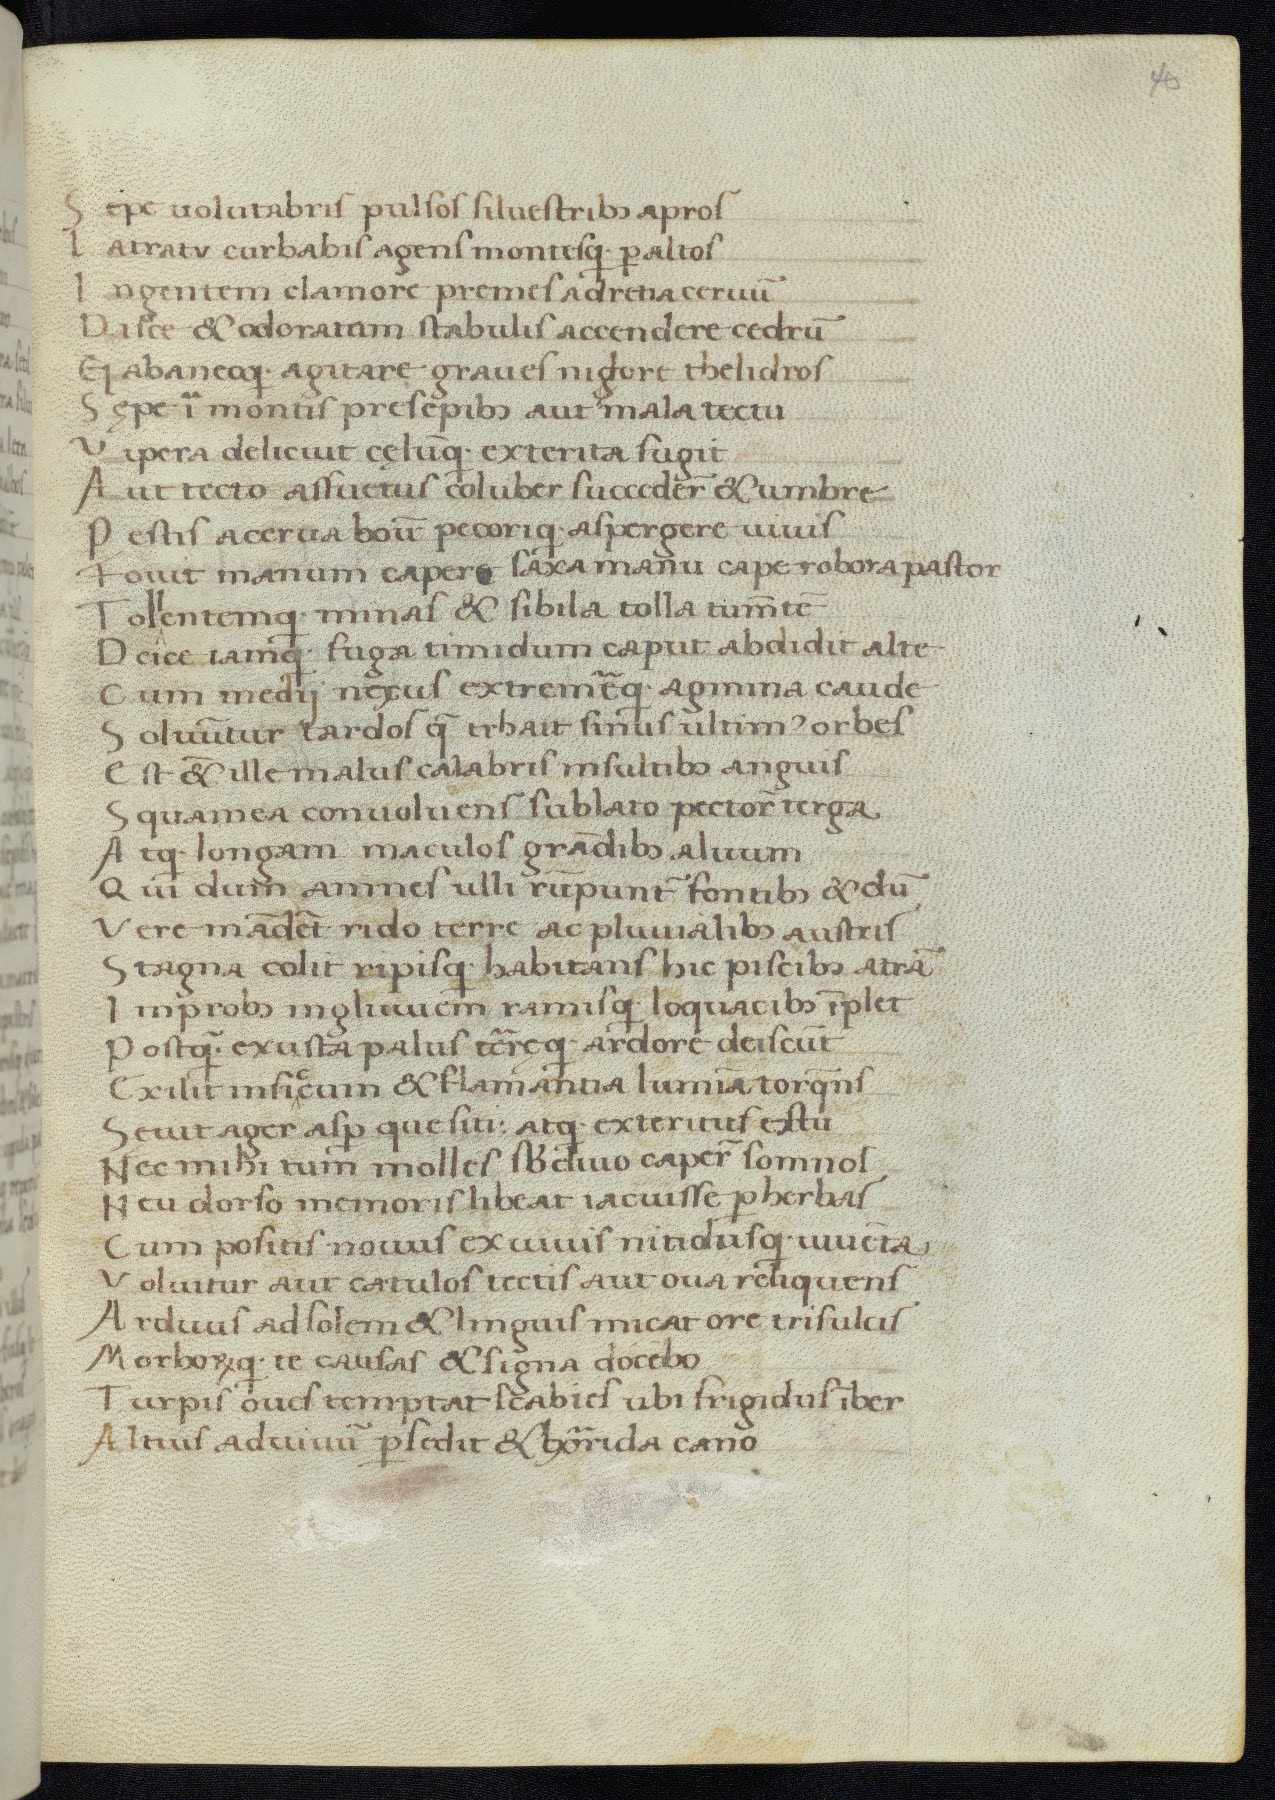 40
S epe uolutabris pulsos siluestribꝫ apros
l atratv curbabis agens montesq̄· ꝑ altos
I ngentem clamore premes ad retia ceruū
D isce & odoratum stabulis accendere cedrū
G abaneoq̄· agitare graues nigdore thelidros
S ępe īī montis presepibꝫ aut mala tectu
V ipera delicuit cęlūq̄· exterita fugit
A ut tecto assuetus coluber succeder̄ & umbre
P estis acerua boū pecoriq̄· aspergere uiuis
F ouit manum capere saxa manu cape robora pastor
T ollentemq̄· minas & sibila colla tum̄tē
D eice iamq̄· fuga timidum caput abdidit alte
C um medij nexus extremēq̄· agmina caude
S oluūtur tardos q̄ trhait sinus ultimꝰ orbes
E st &̄ ille malus calabris insultibꝫ anguis
S quamea conuoluens sublato pector̄ terga
A tq̄· longam maculos grādibꝫ aluum
Q ui dum amnes ulli rūpunt̄ fontibꝫ & dū
V ere mādēt rido terre ac pluuialibꝫ austris
S tagna colit ripisq̄· habitans hic piscibꝫ atrā
I mprobꝫ ingliuuiem̄ ramisq̄· loquacibꝫ īplet
P ostq̄· exusta palus tērreq̄· ardore deiscūt
E xilit in sicum & flāmantia lumīa torq̄ns
S euit ager asꝑ que siti· atq̄· exteritus estu
N ec mihi tum molles sƀ diuo caper̄ somnos
N eu dorso memoris libeat iacuisse ꝑ herbas
C um positis nouus ex uiuis nitidusq̄· iuuēta
V oluitur aut catulos tectis aut oua reliquens
A rduus ad solem & linguis micat ore trisulcis
M orboꝝq̄· te causas & signa docebo
T urpis oues temptat scabies ubi frigidus iber
A ltius ad uiuū ꝑsedit & horrida cano